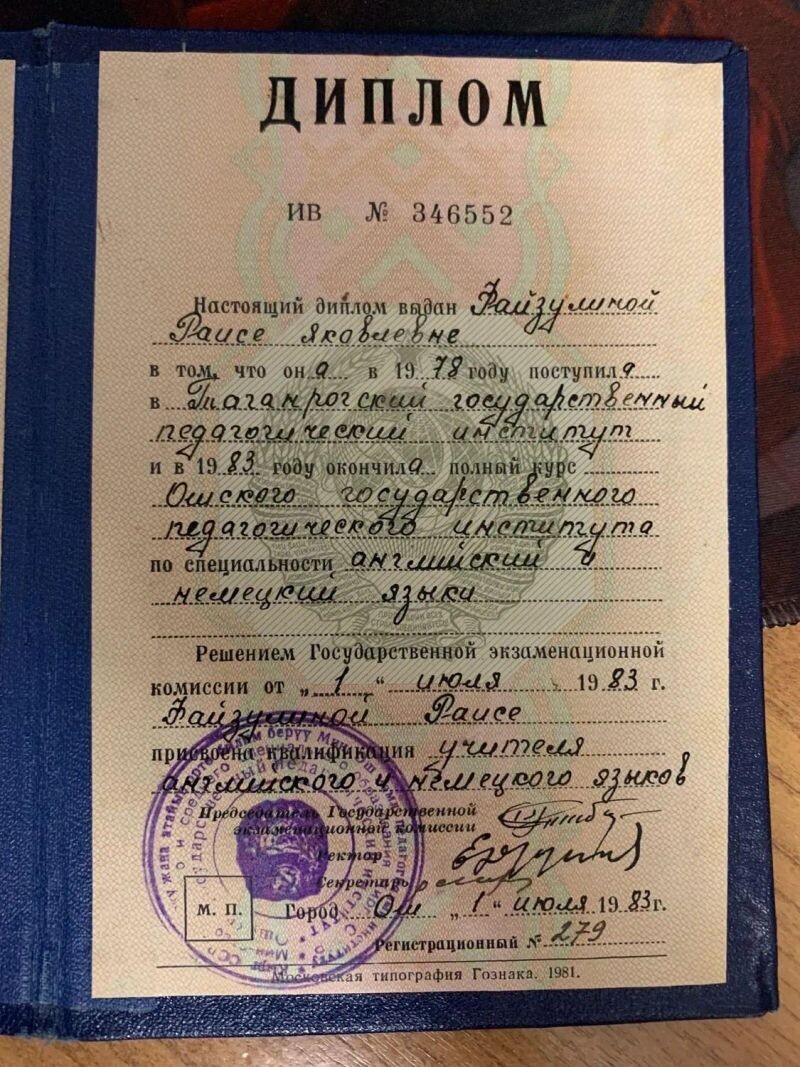 ДИПЛОМ
ИВ № 346552
Настоящий диплом выдан Файзулиной
Раисе Яковлевне
в том, что она в 1978 году поступила
в Таганрогский государственный
педагогический институт
и в 1983 году окончила полный курс
Ошского государственного
педагогического института
по специальности английский и
немецкий языки
Решением Государственной экзаменационной
комиссии от „1“ июля 1983 г.
Файзулиной Раисе
присвоена квалификация учителя
английского и немецкого языков
Председатель Государственной
экзаменационной комиссии
Ректор
Секретарь
М. П.
Город Ош „1“ июля 1983г.
Регистрационный № 279
Московская типография Гознака. 1981.